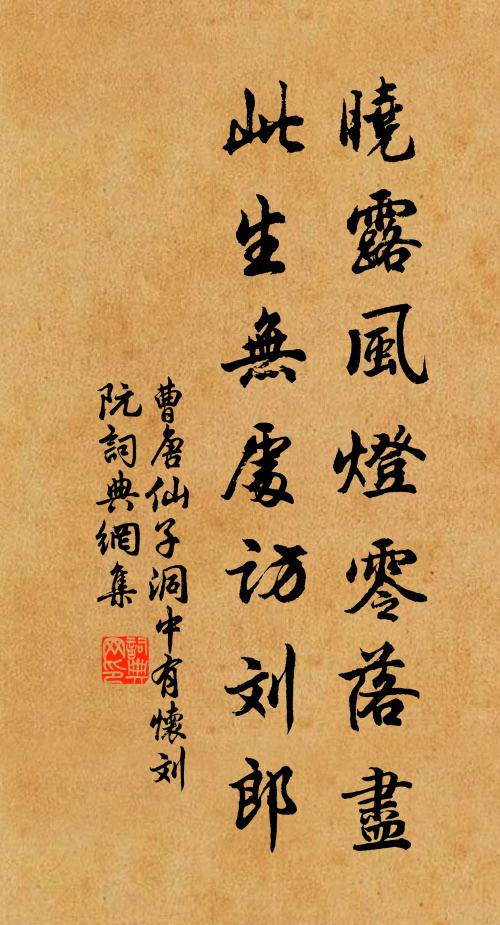 曉露風燈零落盡
此生無處訪刘郎
曹唐仙子洞中有懷刘
阮詞典網集
詞典网印